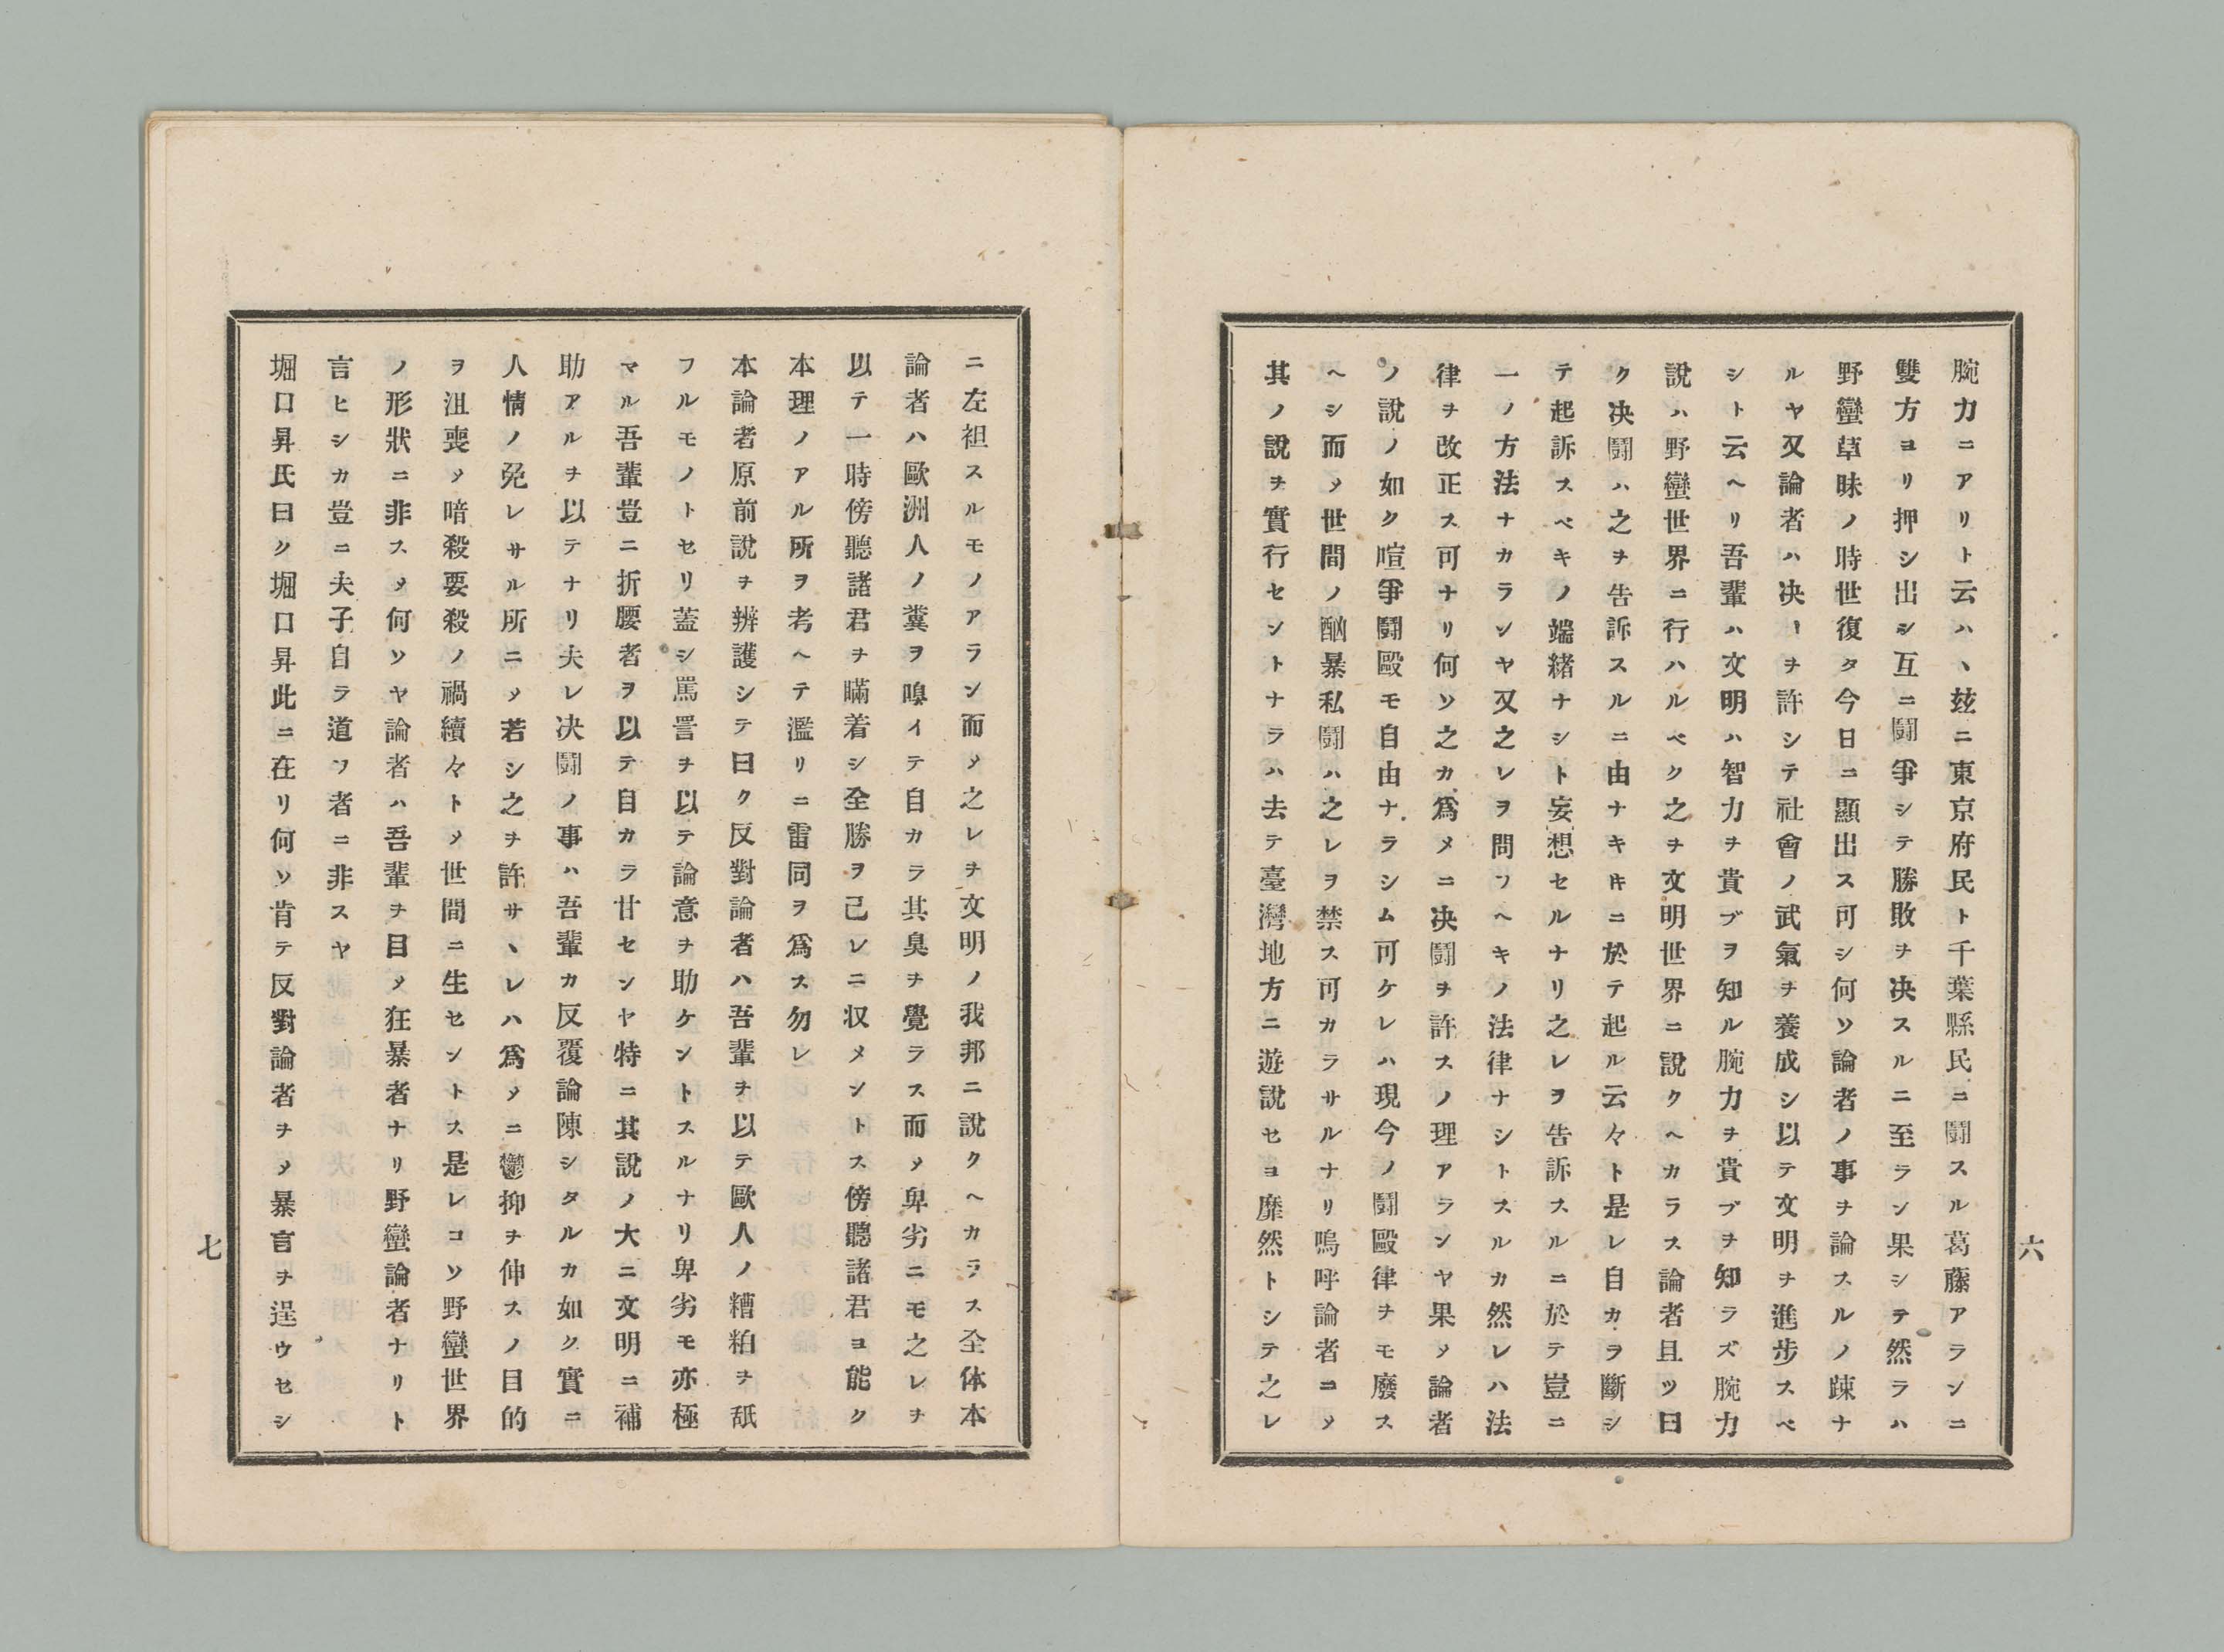 腕力ニアリト云ハヽ玆ニ東京府民ト千葉縣民ニ鬪スル葛藤アランニ
雙方ヨリ押シ出シ互ニ鬪爭シテ勝敗ヲ决スルニ至ラン果シテ然ラハ
野蠻草昧ノ時世復タ今日ニ顯出ス可シ何ソ論者ノ事ヲ論スルノ踈ナ
ルヤ又論者ハ决ーヲ許シテ社會ノ武氣ヲ養成シ以テ文明ヲ進步スベ
シト云ヘリ吾輩ハ文明ハ智力ヲ貴ブヲ知ル腕力ヲ貴ブヲ知ラズ腕力
說ハ野蠻世界ニ行ハルベク之ヲ文明世界ニ說クヘカラス論者且ツ曰
ク决鬪ハ之ヲ告訴スルニ由ナキキニ於テ起ル云々ト是レ自カラ斷シ
テ起訴スベキノ端緖ナシト妄想セルナリ之レヲ告訴スルニ於テ豈ニ
一ノ方法ナカランヤ又之レヲ問フヘキノ法律ナシトスルカ然レハ法
律ヲ改正ス可ナリ何ソ之カ爲メニ决鬪ヲ許スノ理アランヤ果〆論者
ノ說ノ如ク喧爭鬪毆モ自由ナラシム可ケレハ現今ノ鬪毆律ヲモ廢ス
ヘシ而〆世間ノ酗暴私鬪ハ之レヲ禁ス可カラサルナリ嗚呼論者コ〆
其ノ說ヲ實行セントナラハ去テ臺灣地方ニ遊說セヨ靡然トシテ之レ
六
ニ左袒スルモノアラン而〆之レヲ文明ノ我邦ニ說クヘカラス全体本
論者ハ歐洲人ノ糞ヲ嗅イテ自カラ其臭ヲ覺ラス而〆卑劣ニモ之レヲ
以テ一時傍聽諸君ヲ瞞着シ全勝ヲ己レニ収メントス傍聽諸君ヨ能ク
本理ノアル所ヲ考ヘテ濫リニ雷同ヲ爲ス勿レ
本論者原前說ヲ辨護シテ曰ク反對論者ハ吾輩ヲ以テ歐人ノ糟粕ヲ舐
フルモノトセリ蓋シ罵詈ヲ以テ論意ヲ助ケントスルナリ卑劣モ亦極
マル吾輩豈ニ折腰者ヲ以テ自カラ甘センヤ特ニ其說ノ大ニ文明ニ補
助アルヲ以テナリ夫レ决鬪ノ事ハ吾輩カ反覆論陳シタルカ如ク實ニ
人情ノ免レサル所ニ〆若シ之ヲ許サヽレハ爲メニ鬱抑ヲ伸スノ目的
ヲ沮喪〆暗殺要殺ノ禍續々ト〆世間ニ生セントス是レコソ野蠻世界
ノ形狀ニ非ス〆何ソヤ論者ハ吾輩ヲ目〆狂暴者ナリ野蠻論者ナリト
言ヒシカ豈ニ夫子自ラ道フ者ニ非スヤ
堀口昇氏曰ク堀口昇此ニ在リ何ソ肯テ反對論者ヲ〆暴言ヲ逞ウセシ
七